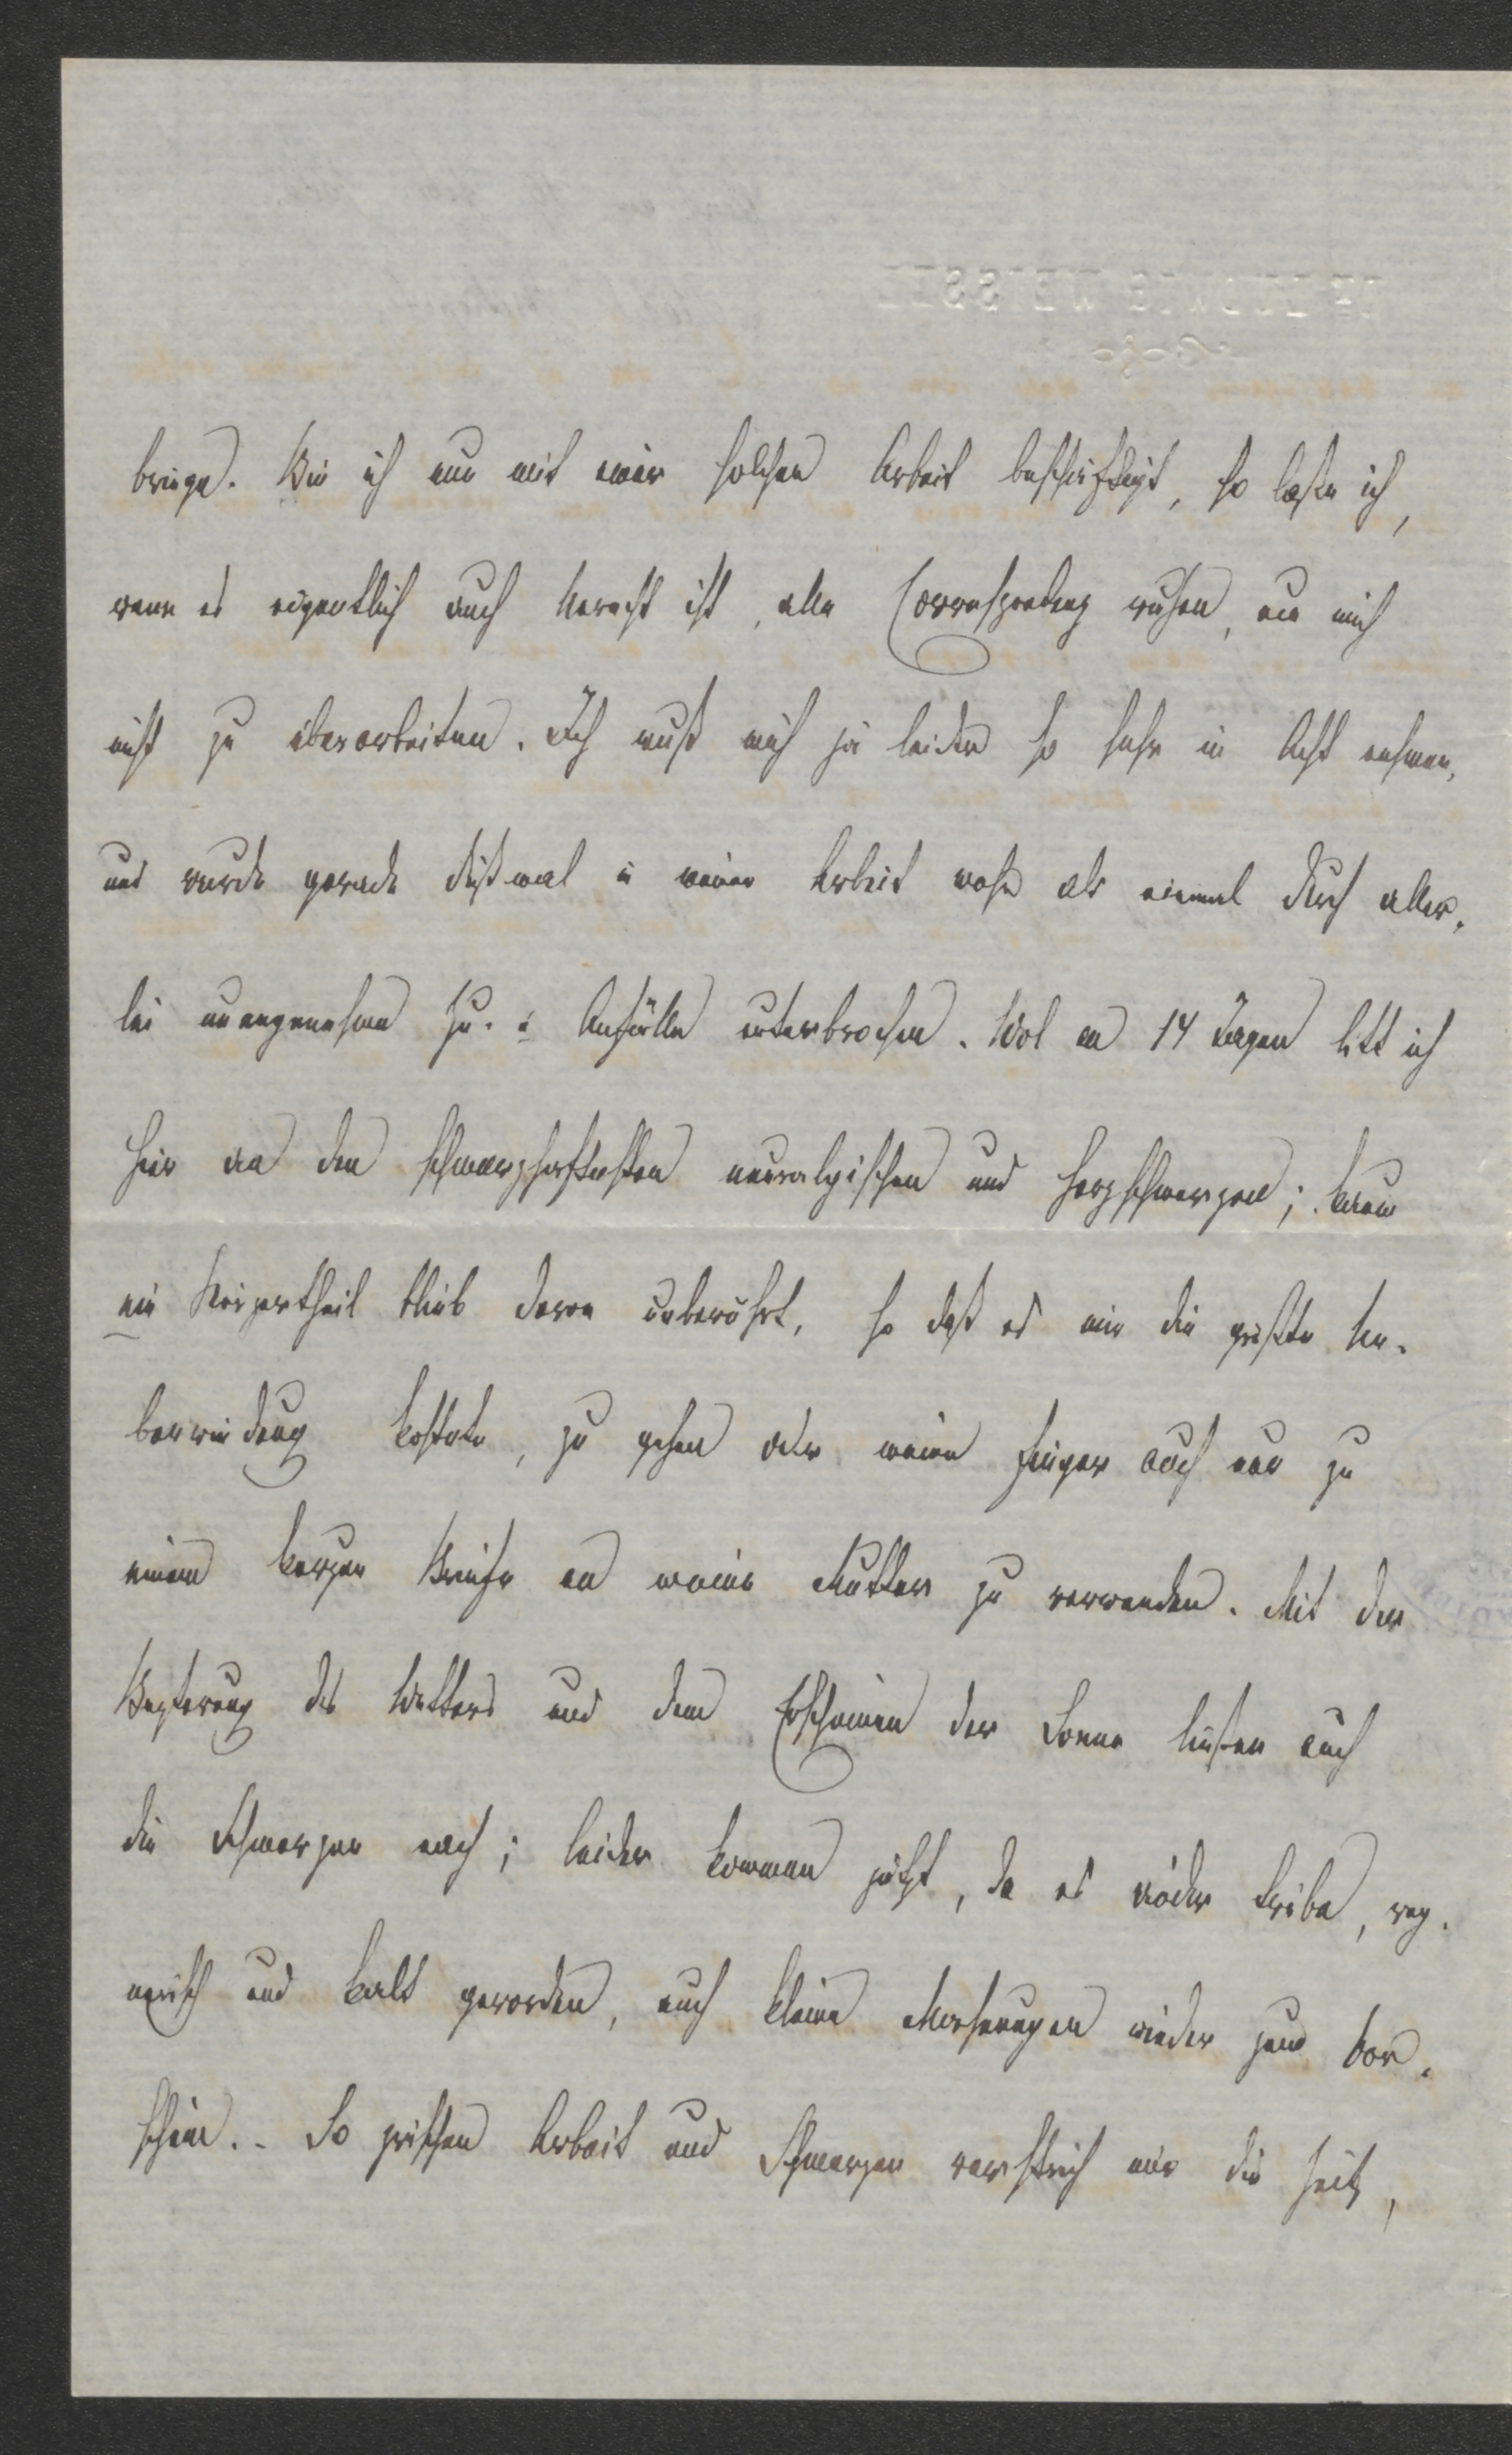 bringe. Bin ich nun mit einer solchen Arbeit beschäftigt, so laße ich,
wenn es eigentlich auch Unrecht ist, alle Correspondenz ruhen, um mich
nicht zu überarbeiten. Ich muß mich ja leider so sehr in Acht nehmen,
und wurde gerade dießmal in meiner Arbeit mehr als einmal durch aller-
lei unangenehme Zu- u Anfälle unterbrochen. Wol an 14 Tagen litt ich
hier an den schmerzhaftesten neuralgischen und Herzschmerzen; kaum
ein Körpertheil blieb davon unberührt, so daß es mir die größte Ue-
berwindung kostete, zu gehen oder meine Finger auch nur zu
einem kurzen Briefe an meine Mutter zu verwenden. Mit der
Beßerung des Wetters und dem Erscheinen der Sonne ließen auch
die Schmerzen nach; leider kommen jetzt, da es wieder trübe, reg-
nerisch und kalt geworden, auch kleine Mahnungen wieder zum Vor-
schein. - So zwischen Arbeit und Schmerzen verstrich mir die Zeit,